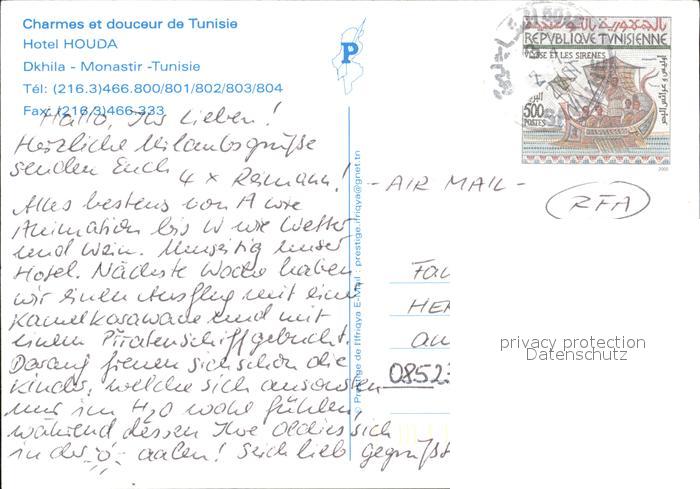 Charmes et douceur de Tunisie
Hotel HOUDA
Dkhila - Monastir -Tunisie
Tél: (216.3)466.800/801/802/803/804
Fax: (216.3)466.333
Hallo, Ihr Lieben!
Herzliche Urlaubsgrüße
senden Euch
4 x Reimann!
Alles bestens von A wie
Animation bis W wie Wetter
und Wein. Umseitig unser
Hotel. Nächste Woche haben
wir einen Ausflug mit einer
Kamelkarawane und mit
einem Piratenschiff gebucht.
Darauf freuen sich schon die
Kinder, welche sich ansonsten
nur im H2O wohl fühlen,
während dessen Ihre Oldies sich
in der aalen! Seid lieb gegrüßt
P
© Prestige de l'Ifriqya E-Mail : prestige.ifriqya@gnet.tn
الجمهورية التونسية
REPVBLIQUE TVNISIENNE
VLYSSE ET LES SIRENES
أوليس و عرائس البحر
البريد
500
POSTES
2000
- AIR MAIL -
RFA
FAM
HER
AU
0852
privacy protection
Datenschutz